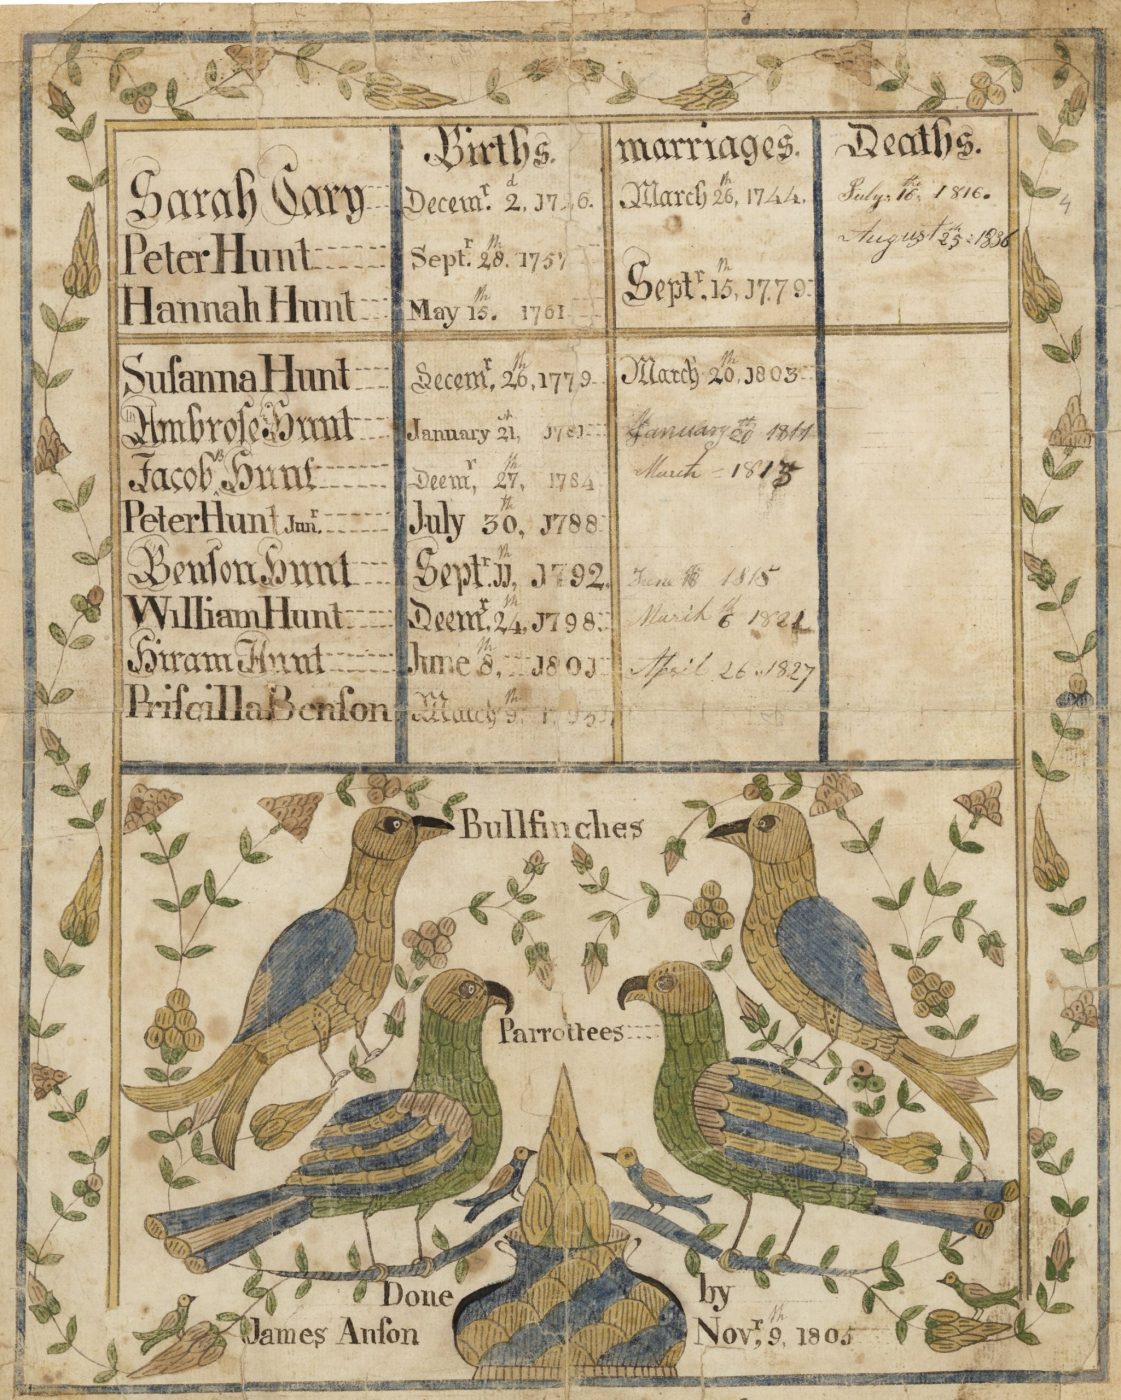 Births. marriages. Deaths.
Sarah Cary Decemr. 2d, 17 6. March 26th, 1744. July, 16th, 1816.
August 25th: 1836
Peter Hunt Septr. 28th. 1757
Hannah Hunt May 15th. 1761 Septr. 15th, 1779
Suſanna Hunt Decemr. 26th, 1779 March 20th, 1803
Ambroſe Hunt January 21st, 1781 January 20th 1811
Jacob B Hunt Deemr, 27th, 1784 March - 1813
Peter Hunt Junr. July 30th, 1788
Benſon Hunt Septr. 11th, 1792. June 1815
William Hunt Deemr. 24th, 1798 March 6th 1821
Hiram Hunt June 8th, 1801 April 26. 1827
Priſcilla Benſon March 9th,
Bullfinches
Parrottees
Done by
James Anſon Novr, 9th, 1805